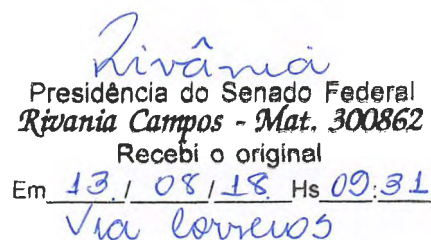 Rivânia
Presidência do Senado Federal
Rivania Campos - Mat. 300862
Recebi o original
Em 13 / 08 / 18 Hs 09:31
Via Correios